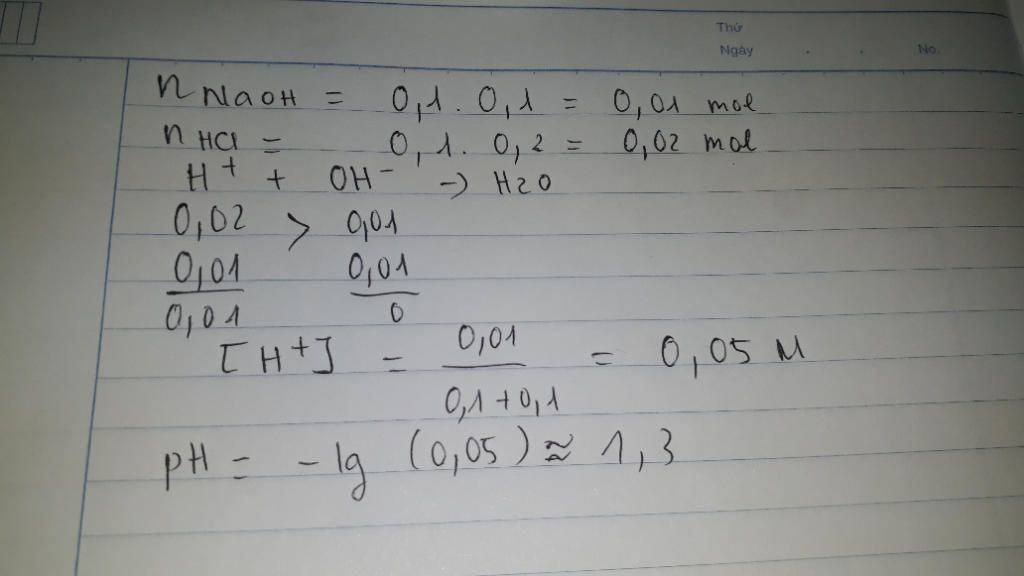 Thứ
Ngày . . No.
n NaOH = 0,1 . 0,1 = 0,01 mol
n HCl = 0,1 . 0,2 = 0,02 mol
H⁺ + OH⁻ → H2O
0,02 > 0,01
0,01 0,01
0,01 0
[H⁺] = 0,01 / 0,1+0,1 = 0,05 M
pH = -lg (0,05) ≈ 1,3